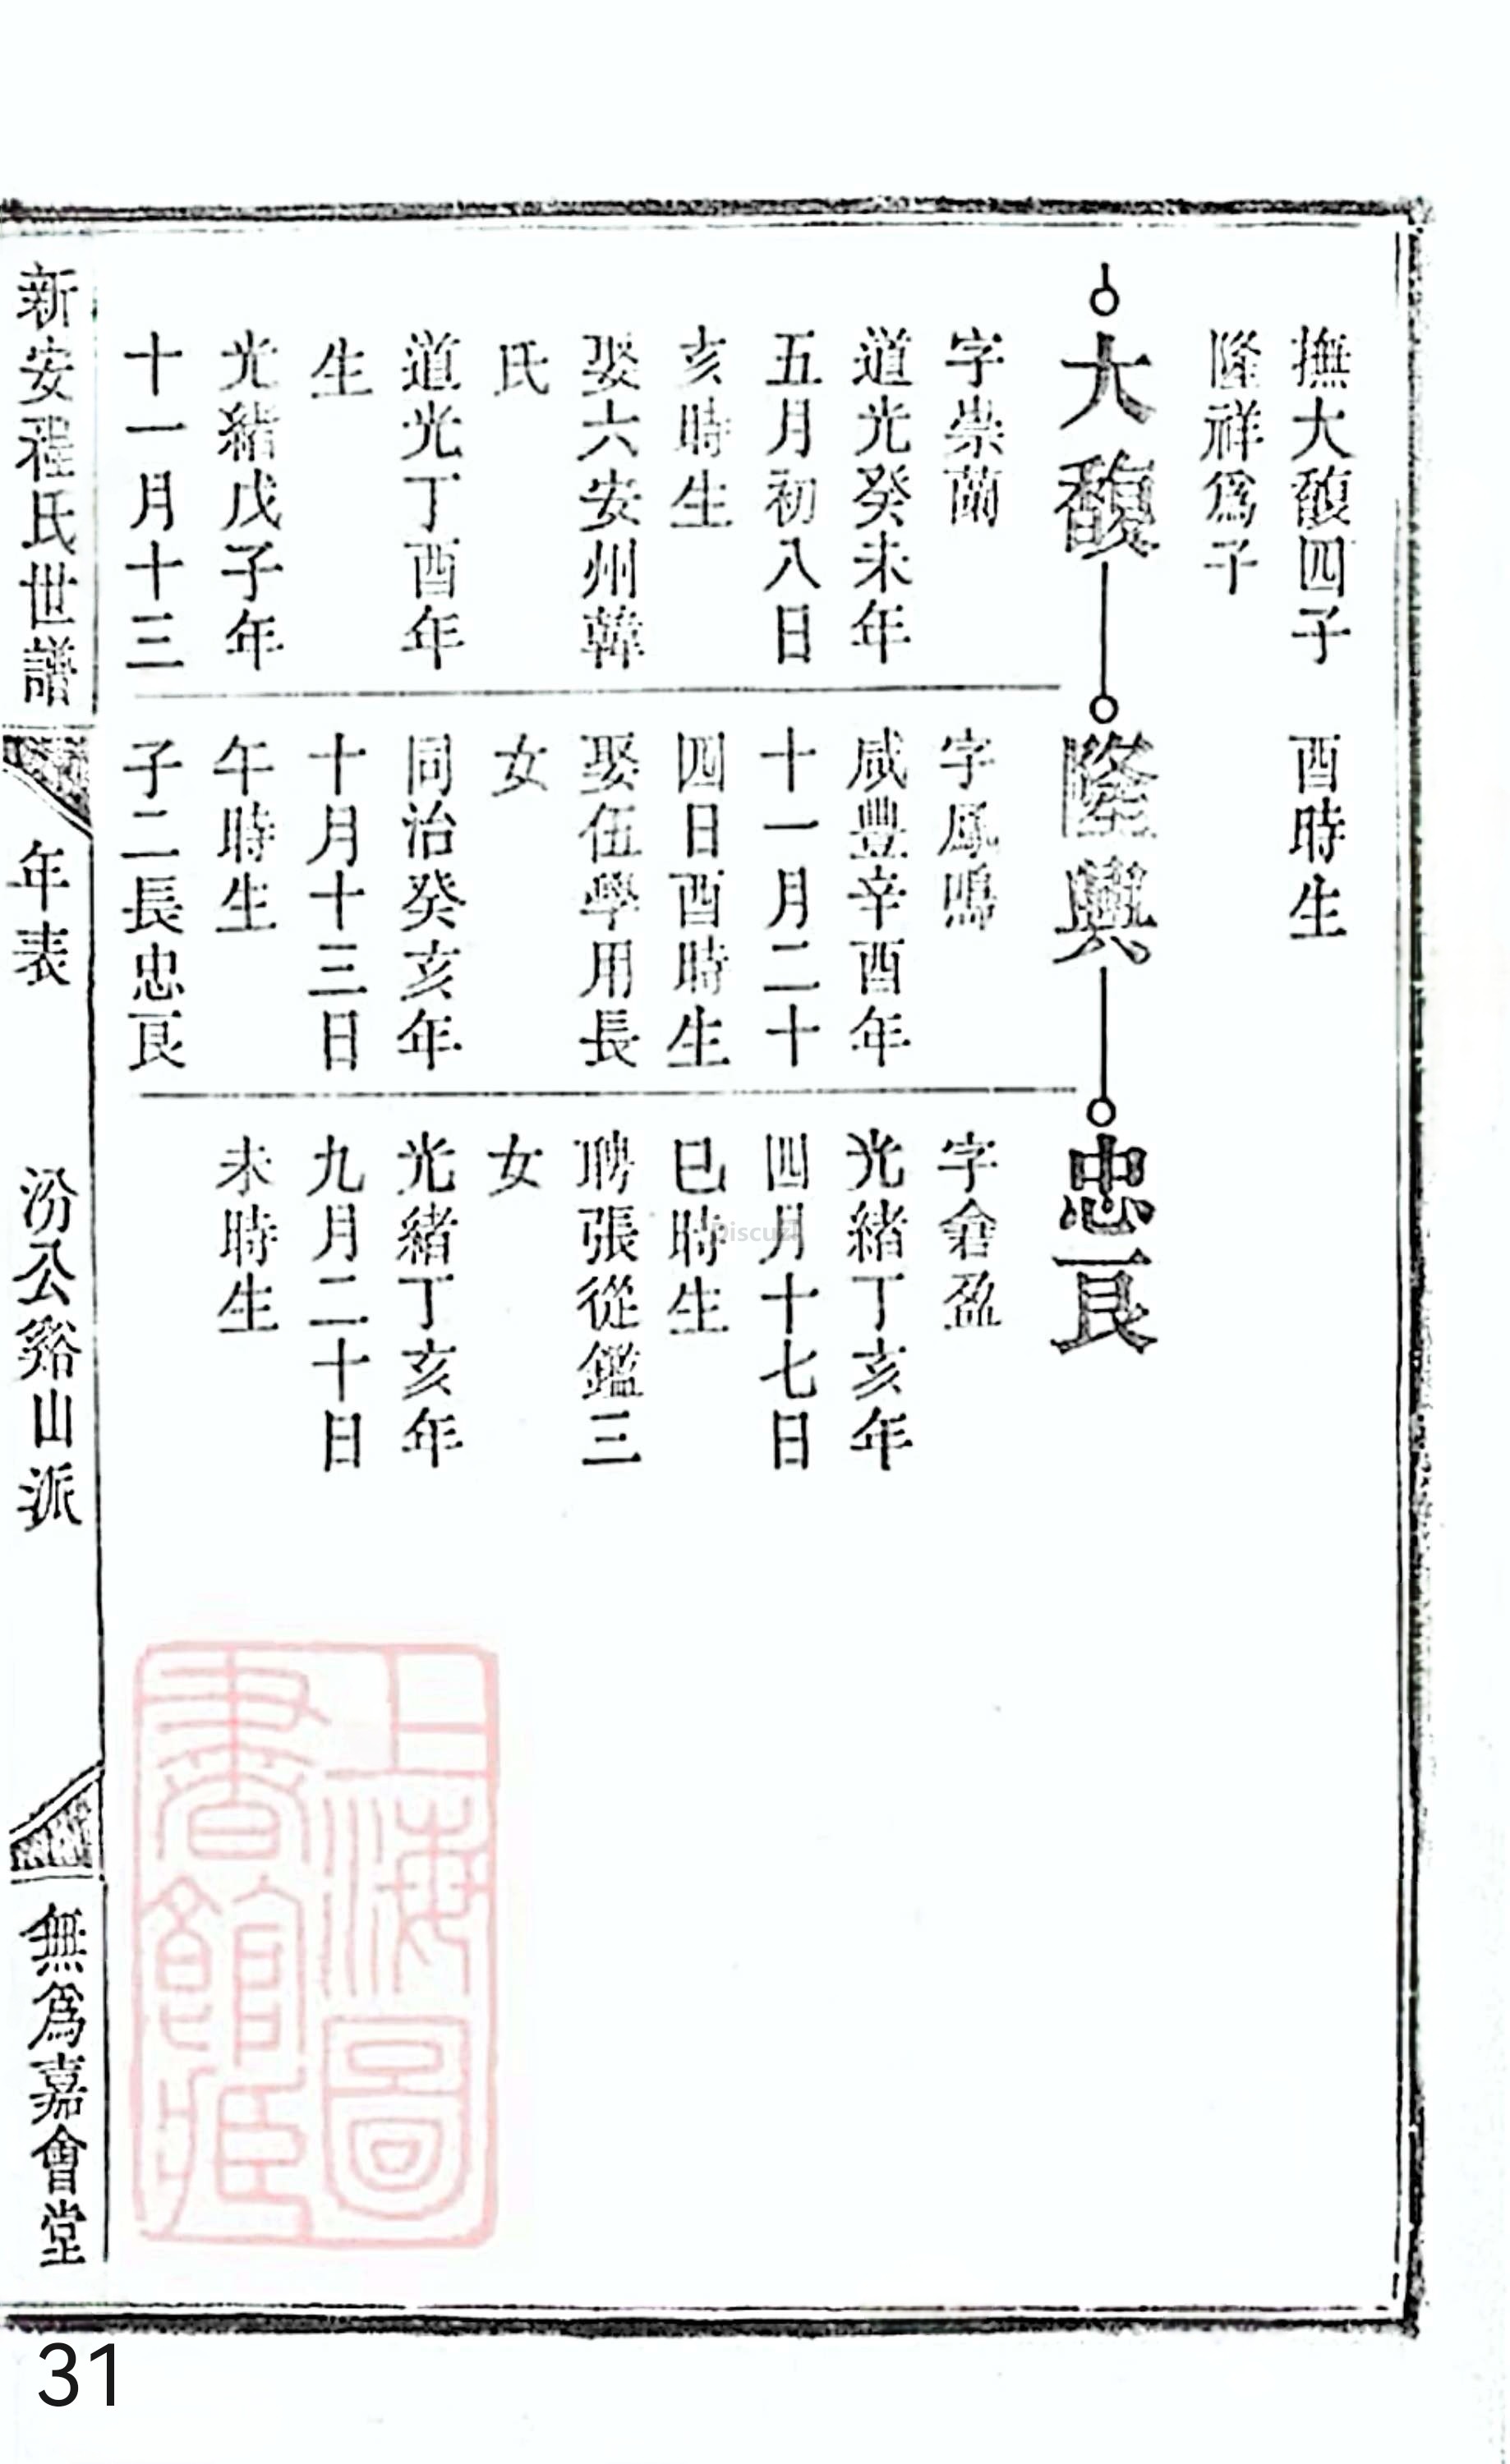 撫大馥四子
隆祥爲子
酉時生
大馥
字崇蘭
道光癸未年
五月初八日
亥時生
娶六安州韓
氏
道光丁酉年
生
光緒戊子年
十一月十三
隆興
字鳳鳴
咸豐辛酉年
十一月二十
四日酉時生
娶伍學用長
女
同治癸亥年
十月十三日
午時生
子二長忠艮
忠艮
字倉盈
光緒丁亥年
四月十七日
巳時生
聘張從鑑三
女
光緒丁亥年
九月二十日
未時生
新安程氏世譜
年表
汾公谿山派
無爲嘉會堂
上海圖
書館藏
Discuz!
31